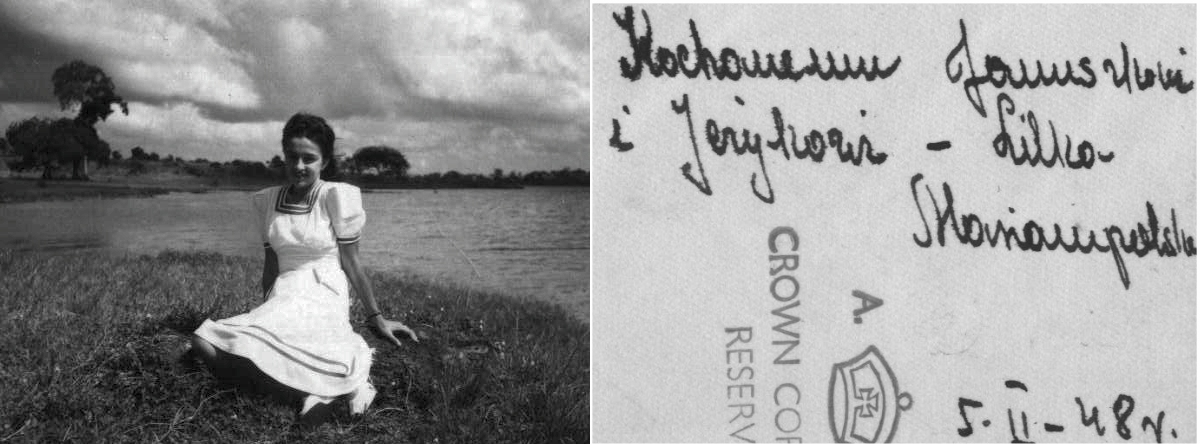 Kochanemu Januszkowi
i Jerzykowi - Lilka
Mariampolska
CROWN COP
RESERV
A.
5-II-48r.